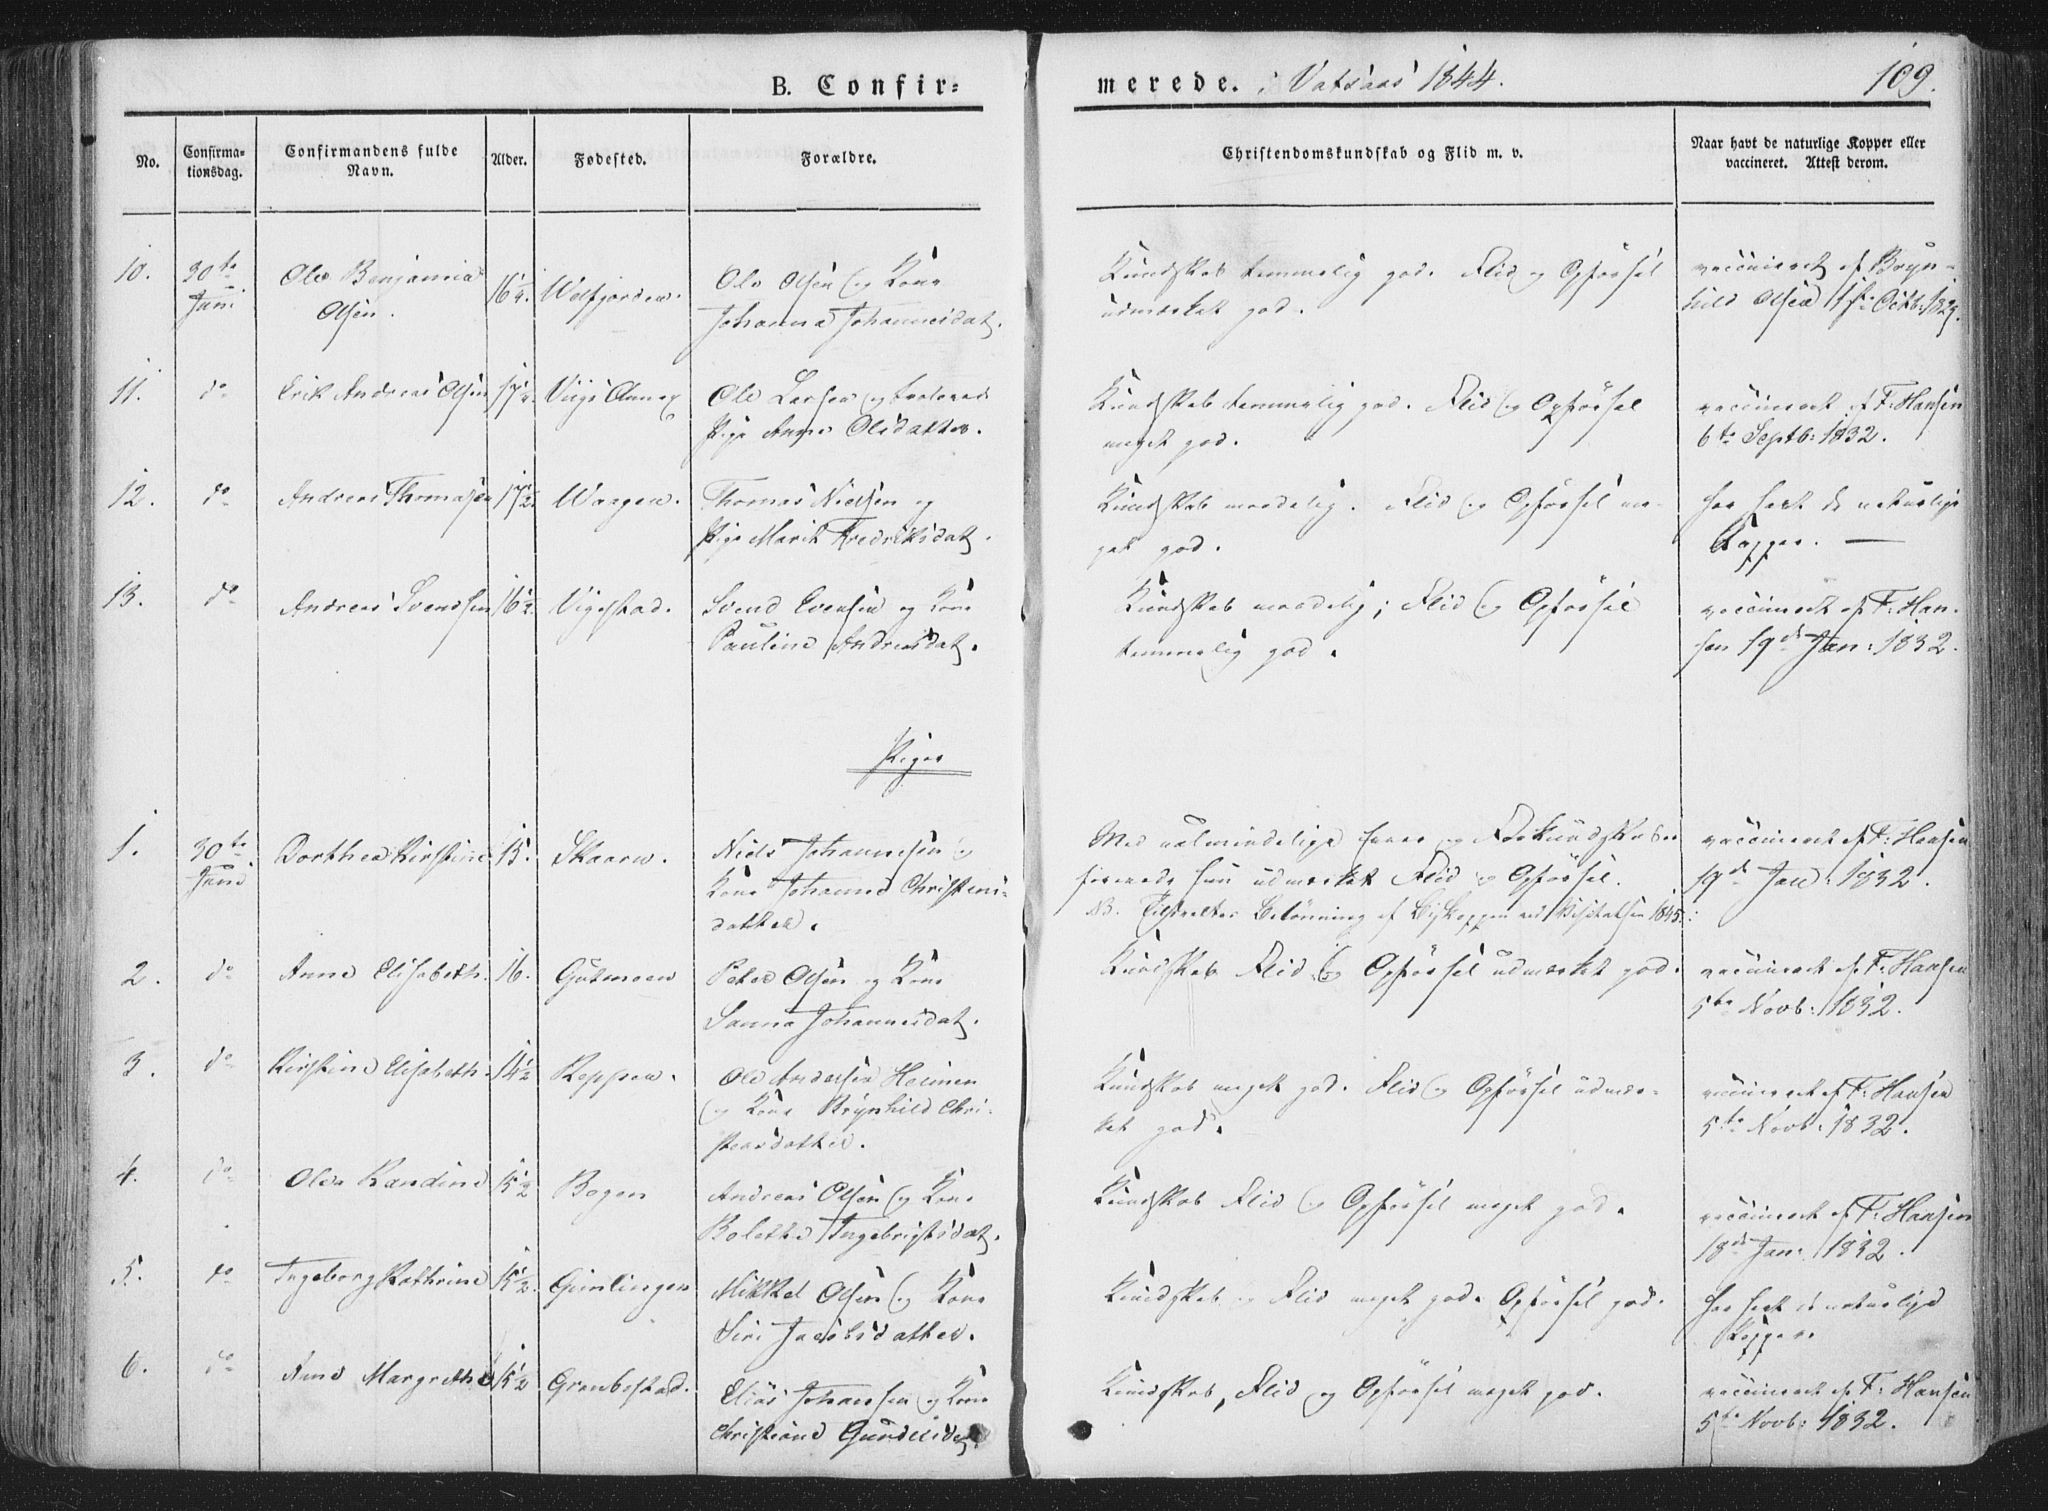 B. Confir=
merede. i Vatsaas 1844.
109.
No.
Confirma-
tionsdag.
Confirmandens fulde
Navn.
Alder.
Fødested.
Forældre.
Christendomskundskab og Flid m. v.
Naar havt de naturlige Kopper eller
vaccineret. Attest derom.
10. 30te Ole Benjamin 16¼ Welfjorden. Ole Olsen og Kone Kundskab temmelig god. Flid og Opførsel vaccineret af Bryn-
Juni Olsen. Johanna Johannesdat. udmærket god. hild Olsen 1ste Octb: 1829.
11. do Erik Andreas Olsen 17¼. Ole Larsen og Kundskab temmelig god. Flid og Opførsel vaccineret af F: Hansen
Pige Anne Olsdatter. meget god. 6te Septb: 1832.
12. do Andreas Thomasen 17½. Waagen. Thomas Nielsen og Kundskab maadelig. Flid og Opførsel me- har havt de naturlige
Pige Marit Fredriksdat. get god. Kopper. —
13. do Andreas Svendsen 16½. Vigestad. Svend Evensen og Kone Kundskab maadelig; Flid og Opførsel vaccineret af F: Han-
Pauline Andreasdat. temmelig god. sen 19de Jan: 1832.
Piger
1. 30te Dorthea Kirstine 15. Skaaren. Niels Johannesen og Med ualmindelige Evner og Forkundskaber vaccineret af F: Hansen
Juni Kone Johanna Christens- forenede hun udmærket Flid og Opførsel. 19de Jan: 1832.
datter. NB. Tilstaaltes Belønning af Biskoppen ved Visitatsen 1845.
2. do Anne Elisabeth. 16. Gutmoen Peter Olsen og Kone Kundskab Flid og Opførsel udmærket god. vaccineret af F: Hansen
Sanna Johannesdat. 5te Novb: 1832.
3. do Kirstine Elisabeth. 14½ Reppen. Ole Andersen Heimen Kundskab meget god. Flid og Opførsel udmær- vaccineret af F: Hansen
og Kone Brynhild Chri- ket god. 5te Novb: 1832.
stensdatter.
4. do Olea Randine 15½ Bogen Andreas Olsen og Kone Kundskab Flid og Opførsel meget god. vaccineret af F: Hansen
Bolethe Ingebrigtsdat. 18de Jan: 1832.
5. do Ingeborg Kathrine 15½. Gimlingen Mikkel Olsen og Kone Kundskab og Flid meget god. Opførsel god. har havt de naturlige
Siri Jacobsdatter. Kopper.
6. do Ane Margrethe 15½ Granbostad. Elias Johansen og Kone Kundskab, Flid og Opførsel meget god. vaccineret af F: Hansen
Christiane 5te Novb: 1832.